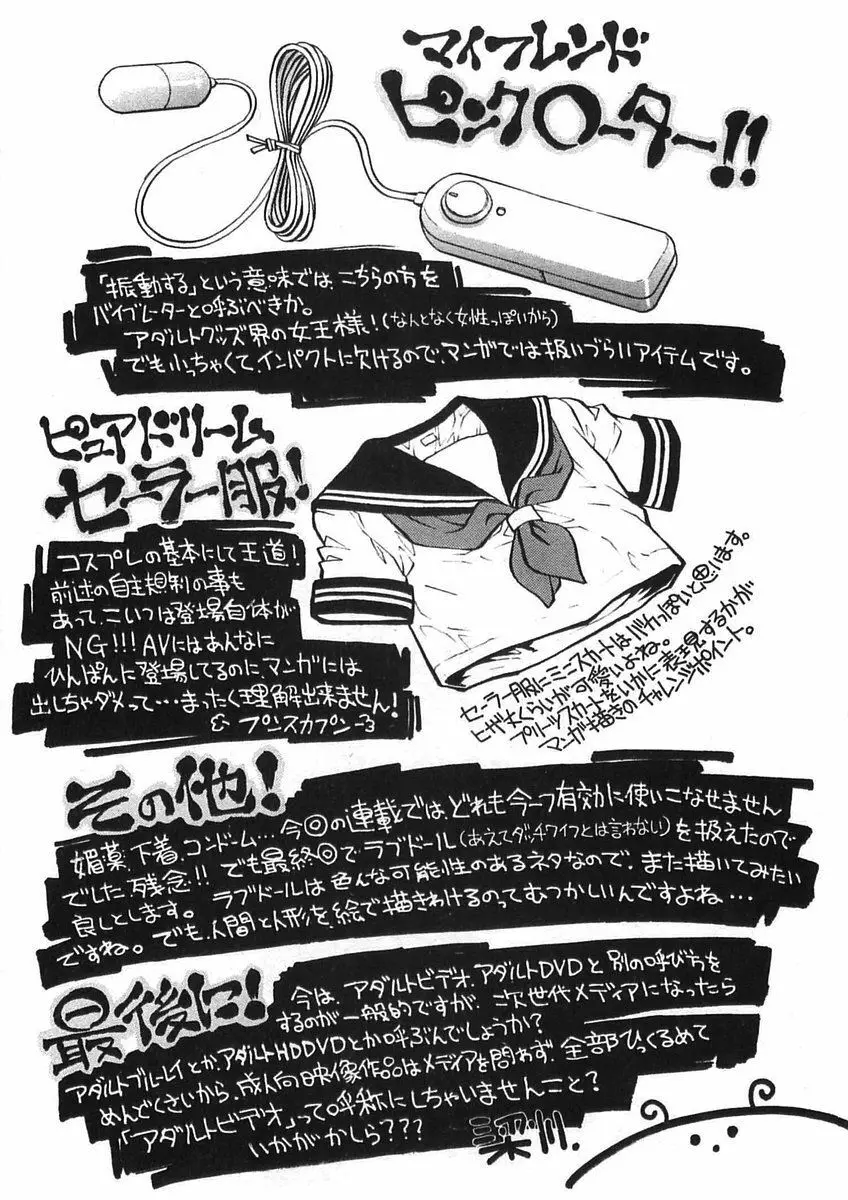 マイフレンド
ピンク〇ーター!!
「振動する」という意味では、こちらの方を
バイブレーターと呼ぶべきか。
アダルトグッズ界の女王様!(なんとなく女性っぽいから)
でも小っちゃくて、インパクトに欠けるので、マンガでは扱いづらいアイテムです。
ピュアドリーム
セーラー服!
コスプレの基本にして王道!
前述の自主規制の事も
あって、こいつは登場自体が
NG!!! AVにはあんなに
ひんぱんに登場してるのに、マンガには
出しちゃダメって…まったく理解出来ません!
プンスカプン
セーラー服にミニスカートはバカっぽいと思います。
ヒザ丈くらいが可愛いよね。
プリーツスカートをいかに表現するかが
マンガ描きのチャレンジポイント。
その他!
媚薬、下着、コンドーム…今回の連載では、どれも今一つ有効に使いこなせません
でした。残念!! でも最終回でラブドール(あえてダッチワイフとは言わない)を扱えたので
良しとします。ラブドールは色んな可能性のあるネタなので、また描いてみたい
ですね。でも、人間と人形を、絵で描きわけるのってむつかしいんですよね…
最後に!
今は、アダルトビデオ、アダルトDVDと別の呼び方を
するのが一般的ですが、次世代メディアになったら
アダルトブルーレイとか、アダルトHDDVDとか呼ぶんでしょうか?
めんどくさいから、成人向映像作品はメディアを問わず、全部ひっくるめて
「アダルトビデオ」って呼称にしちゃいませんこと?
いかがかしら???